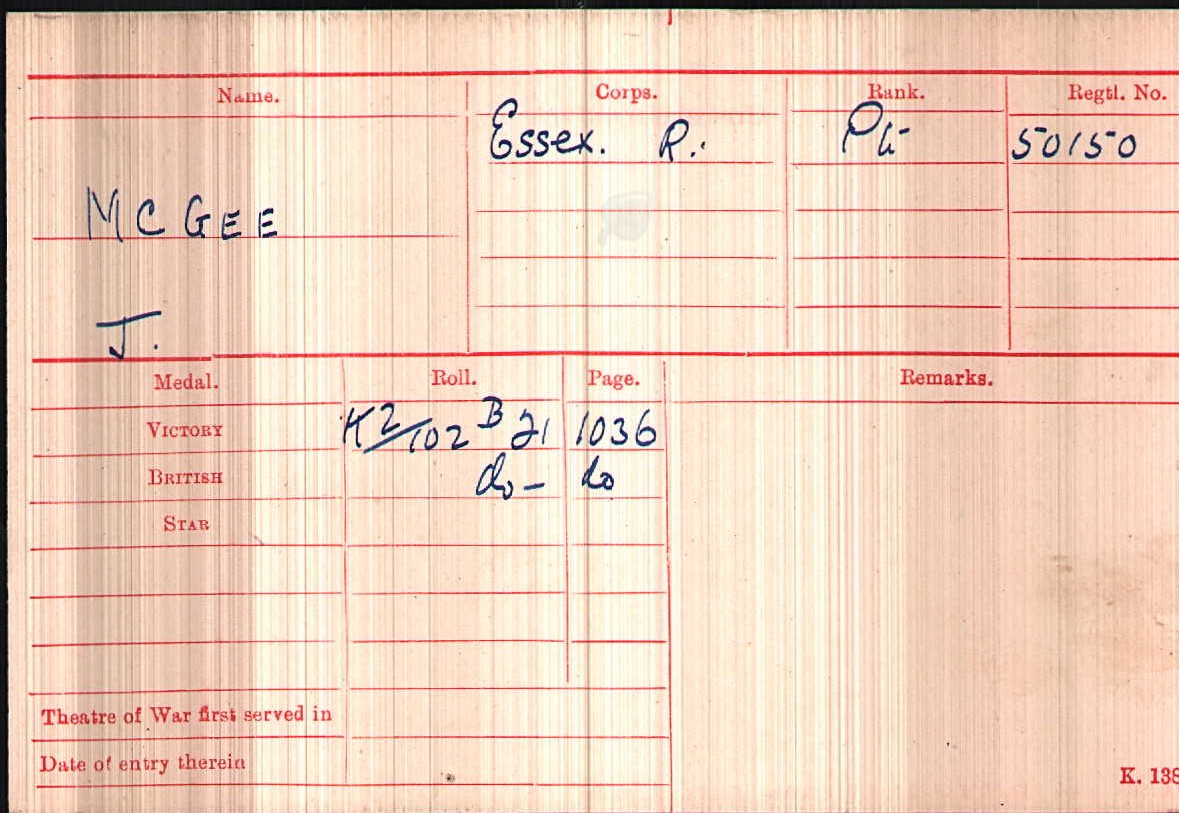 Name. Corps. Rank. Regtl. No.
Essex. R. Pte 50150
MCGEE
J.
Medal. Roll. Page. Remarks.
VICTORY K2/102 B 21 1036
BRITISH do- do
STAR
Theatre of War first served in
Date of entry therein
K. 138